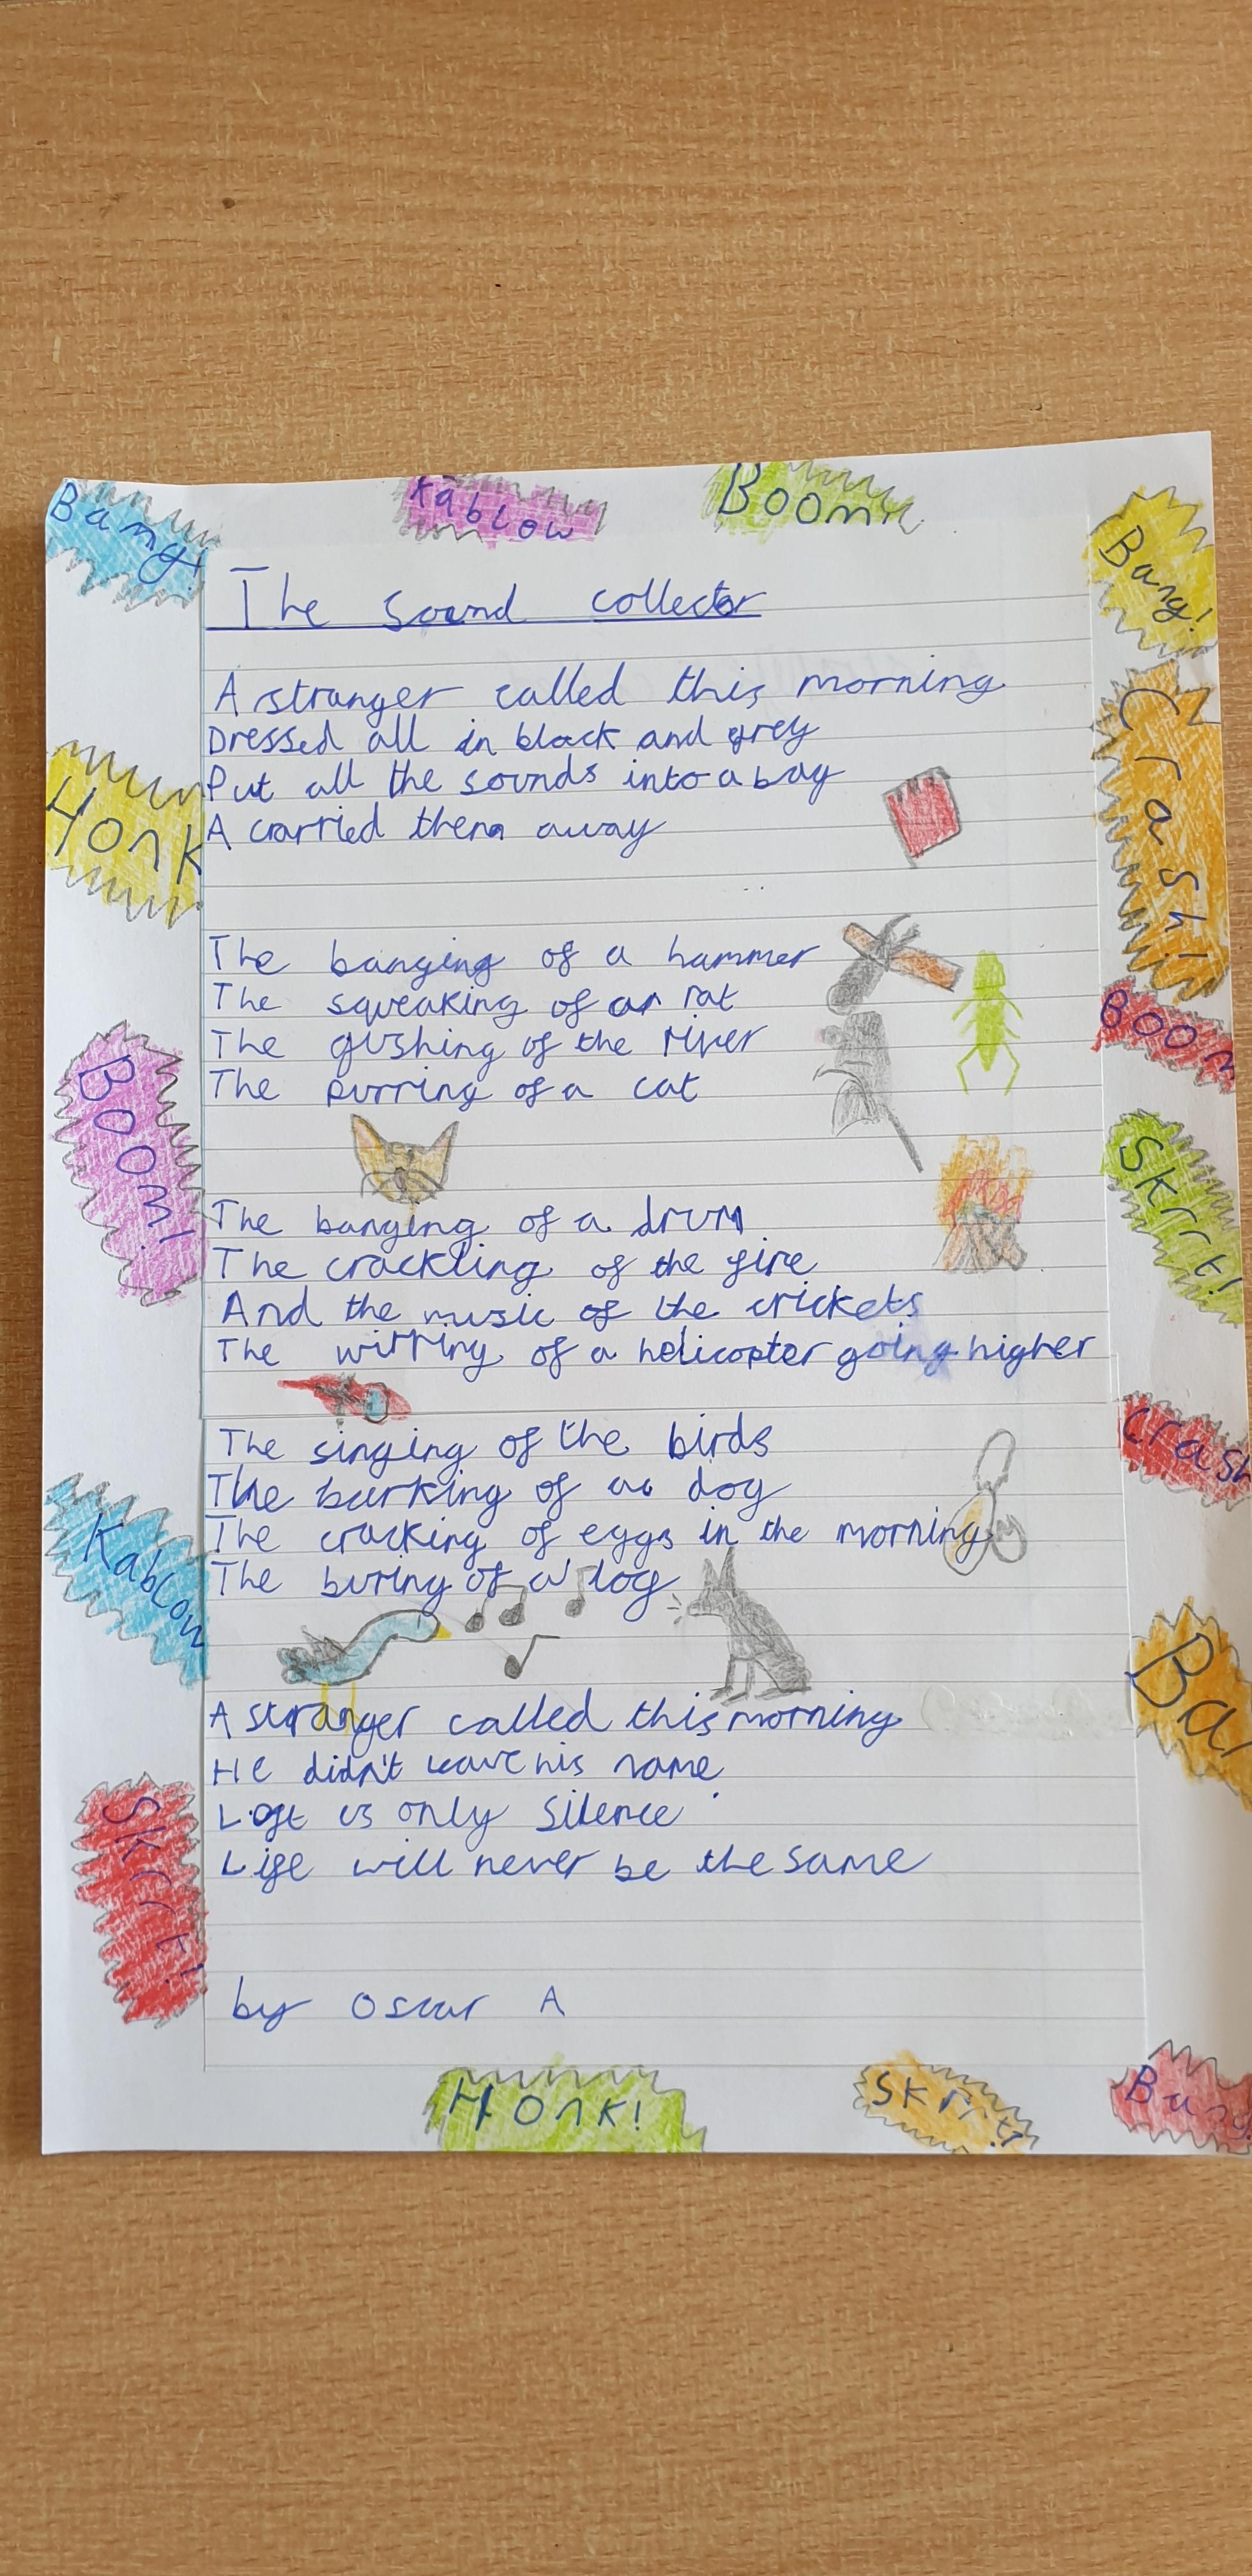 Bang!
Kablow
Boom!
Bang!
The sound collector
A stranger called this morning
Dressed all in black and grey
Put all the sounds into a bag
A carried them away
Crash!
Honk
The banging of a hammer
The squeaking of a rat
The gushing of the river
The purring of a cat
Boom
Boom!
Skrrt!
The banging of a drum
The crackling of the fire
And the music of the crickets
The wirring of a helicopter going higher
Crash
The singing of the birds
The barking of a dog
The cracking of eggs in the morning
The buring of a log
Kablow
Ban
A stranger called this morning
He didn't leave his name
Left us only silence
Life will never be the same
Skrrt!
by Oscar A
Honk!
Skrrt!
Bang!